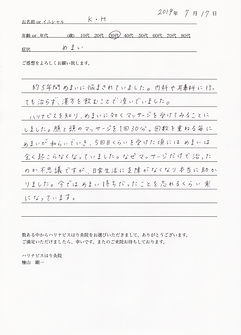 2019年 7月 17日
お名前 or イニシャル K・H
年齢 or 年代 (歳) 10代 20代 30代 40代 50代 60代 70代 80代 90代
症状 めまい
ご感想をよろしくお願い致します。
約5年間めまいに悩まされていました。内科や耳鼻科に行っ
ても治らず、漢方を飲むことで凌いでいました。
ハリナビスを知り、めまいに効くマッサージを受けてみることに
しました。顔と頭のマッサージを1回30分。回数を重ねる毎に
めまいが和らいでいき、5回目くらいを受けた頃にはめまいは
全く起こらなくなっていました。なぜマッサージだけで治った
のか不思議ですが、日常生活に支障がなくなり本当に助か
りました。今ではめまい持ちだったことを忘れるくらい元
になっています。
数ある中からハリナビスはり灸院をお選びいただきまして、ありがとうございます。
ご満足いただけましたら、幸いです。またのご来院お待ちしております。
ハリナビスはり灸院
檜山 順一